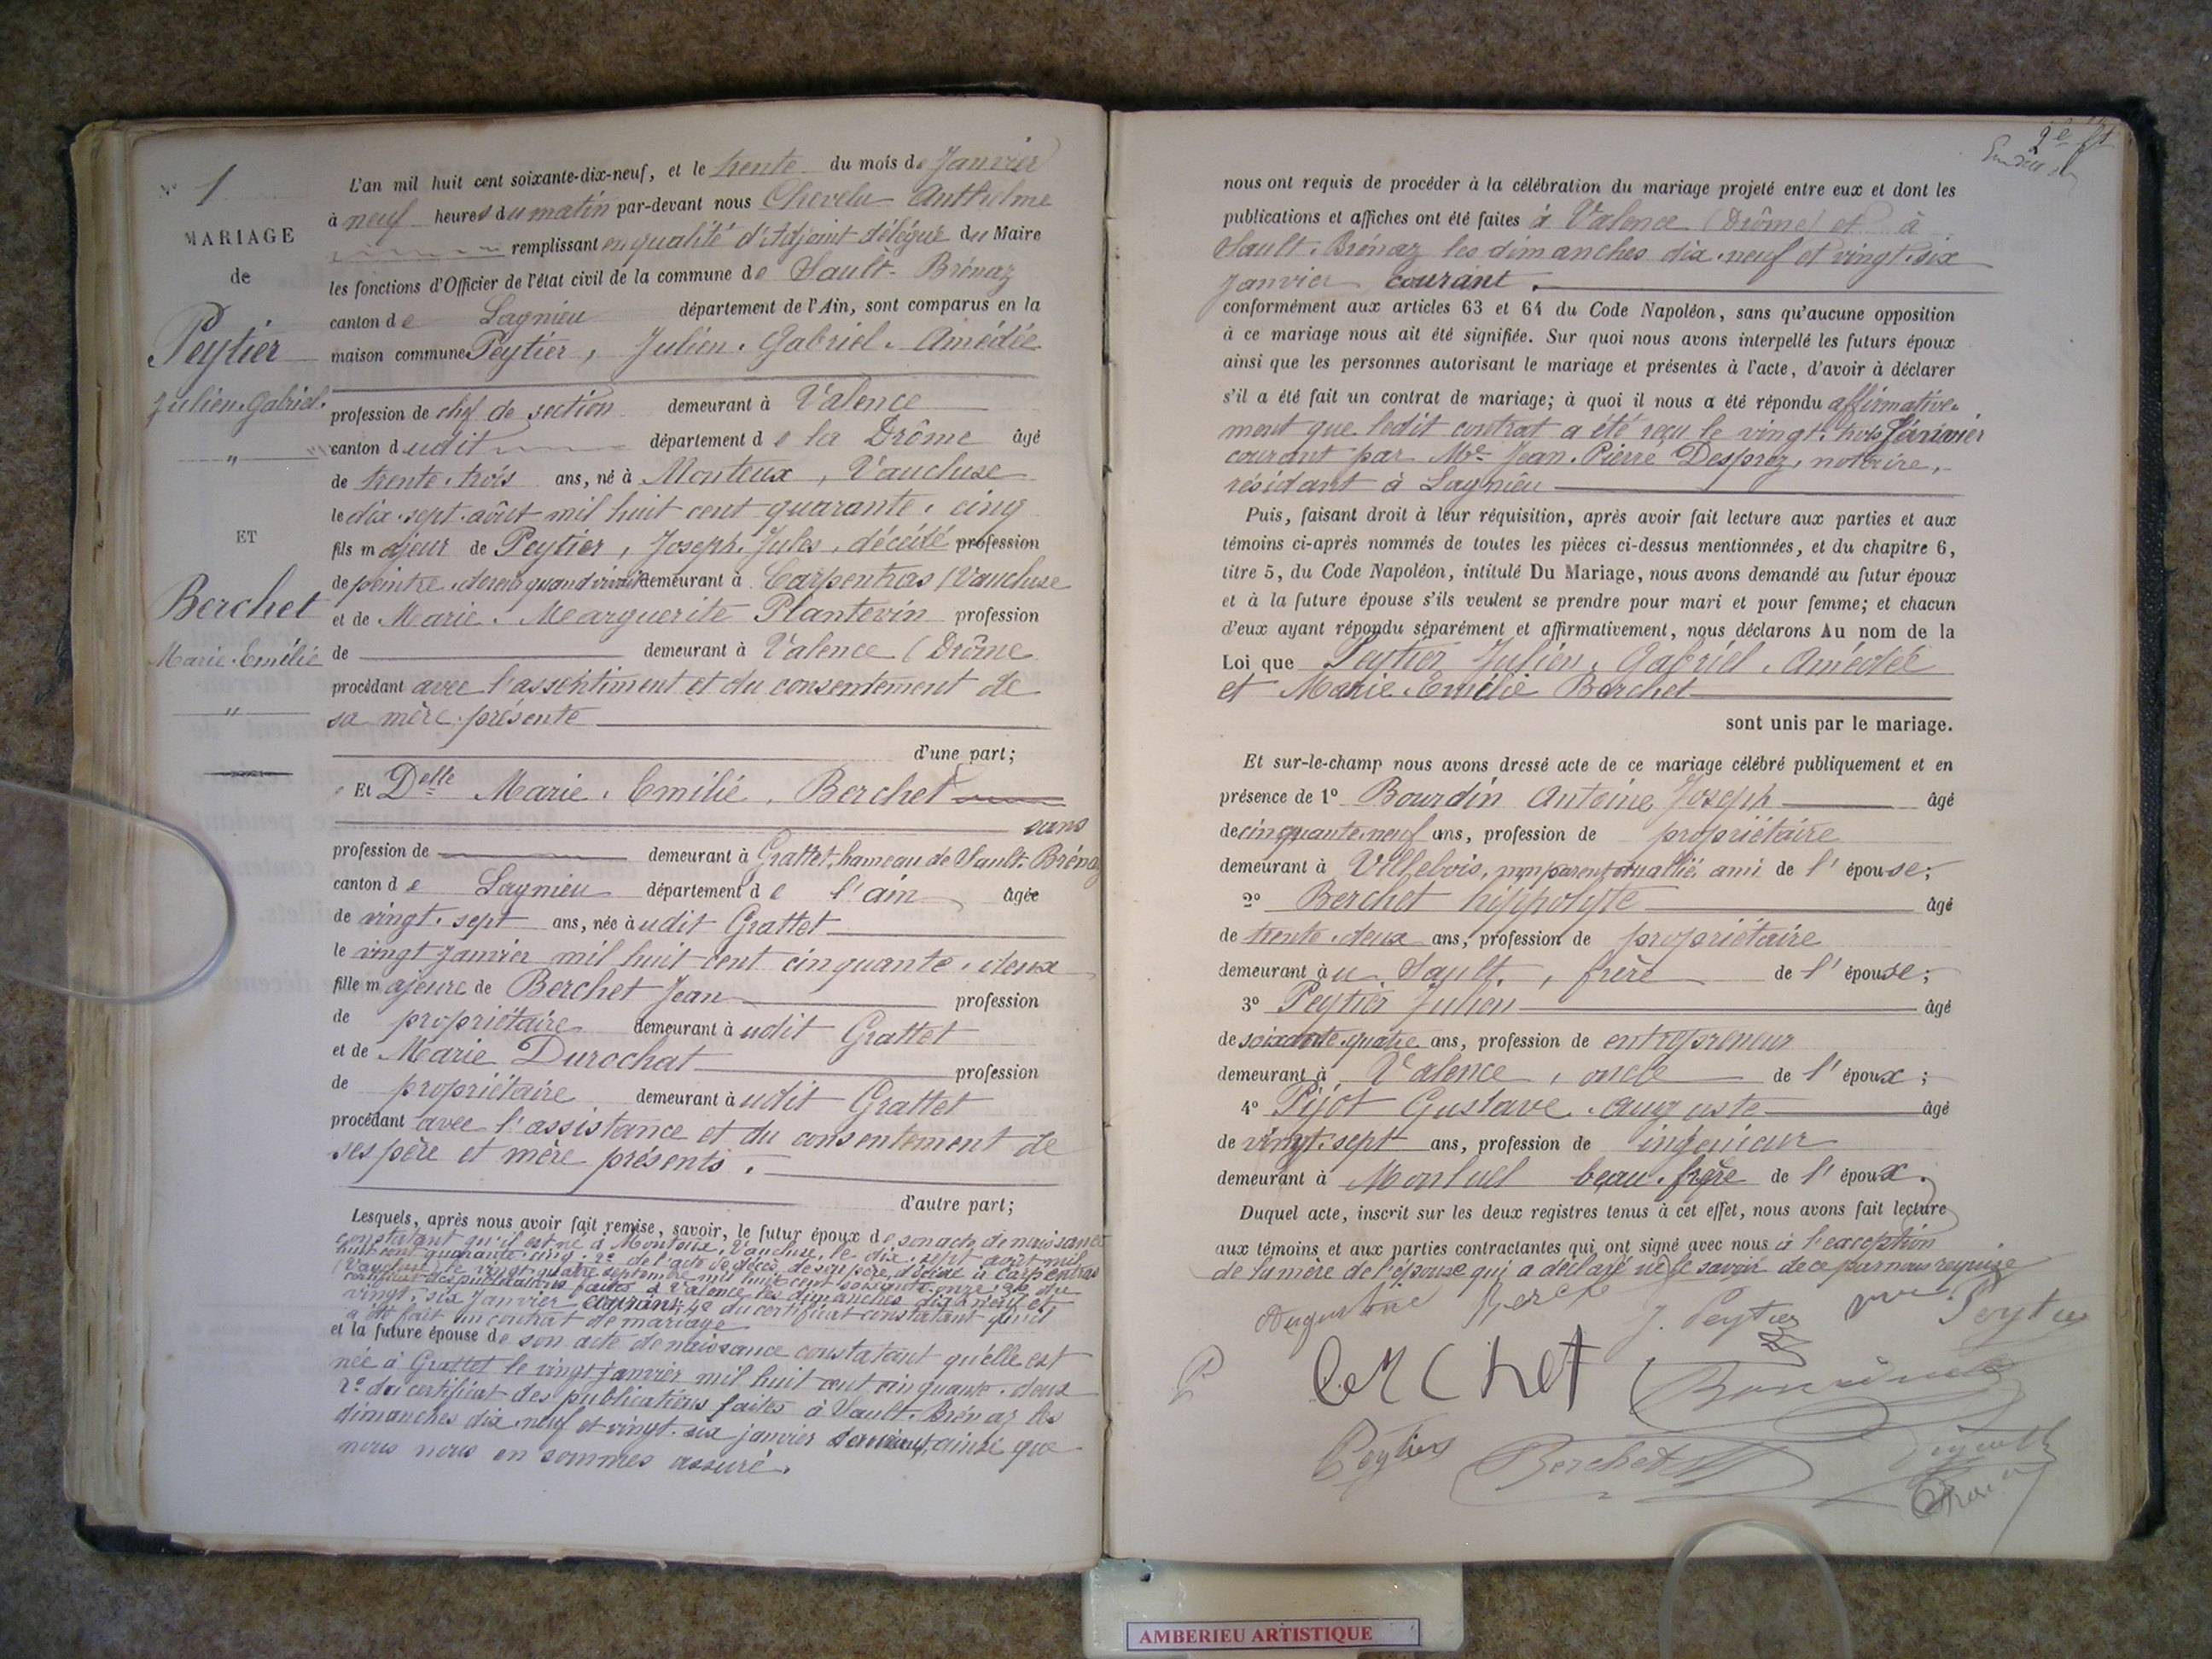 N° 1
MARIAGE
de
Peytier
Julien. Gabriel.
"
ET
Berchet
Marie. Emélie
"
L'an mil huit cent soixante-dix-neuf, et le trente du mois de Janvier
à neuf heures du matin par-devant nous Chevelu Anthelme
remplissant en qualité d'Adjoint délégué du Maire
les fonctions d'Officier de l'état civil de la commune de Sault-Brénaz
canton de Lagnieu département de l'Ain, sont comparus en la
maison commune Peytier, Julien. Gabriel. Amédée
profession de chef de section demeurant à Valence
canton dudit département de la Drôme âgé
de trente. trois ans, né à Monteux, Vaucluse
le dix. sept. août mil huit cent quarante. cinq
fils majeur de Peytier, Joseph. Jules, décédé profession
de peintre. doreur quand vivait demeurant à Carpentras (Vaucluse
et de Marie. Marguerite Plantevin profession
de demeurant à Valence (Drôme
procédant avec l'assentiment et du consentement de
sa mère présente
d'une part;
Et Delle Marie. Emilié. Berchet
sans
profession de demeurant à Grattet, hameau de Sault. Brénaz
canton de Lagnieu département de l'ain âgée
de vingt. sept ans, née audit Grattet
le vingt janvier mil huit cent cinquante. deux
fille majeure de Berchet Jean profession
de propriétaire demeurant audit Grattet
et de Marie Durochat profession
de propriétaire demeurant audit Grattet
procédant avec l'assistance et du consentement de
ses père et mère présents.
d'autre part;
Lesquels, après nous avoir fait remise, savoir, le futur époux de son acte de naissance
constatant qu'il est né à Monteux, Vaucluse, le dix. sept août mil
huit cent quarante. cinq. 2° de l'acte de décès de son père, décédé à Carpentras
(Vaucluse) le vingt. quatre septembre mil huit cent soixante. onze. 3° du
certificat des publications faites à Valence les dimanches dix. neuf et
vingt. six Janvier courant; 4° du certificat constatant qu'il
a été fait un contrat de mariage
et la future épouse de son acte de naissance constatant qu'elle est
née à Grattet le vingt janvier mil huit cent cinquante. deux
2° du certificat des publications faites à Sault. Brénaz les
dimanches dix. neuf et vingt. six janvier ainsi que
nous nous en sommes assuré.
nous ont requis de procéder à la célébration du mariage projeté entre eux et dont les
publications et affiches ont été faites à Valence (Drôme) et à
Sault. Brénaz les dimanches dix. neuf et vingt. six
janvier courant.
conformément aux articles 63 et 64 du Code Napoléon, sans qu'aucune opposition
à ce mariage nous ait été signifiée. Sur quoi nous avons interpellé les futurs époux
ainsi que les personnes autorisant le mariage et présentes à l'acte, d'avoir à déclarer
s'il a été fait un contrat de mariage; à quoi il nous a été répondu affirmative.
ment que ledit contrat a été reçu le vingt. trois
courant par Me Jean. Pierre Desprez, notaire,
résidant à Lagnieu
Puis, faisant droit à leur réquisition, après avoir fait lecture aux parties et aux
témoins ci-après nommés de toutes les pièces ci-dessus mentionnées, et du chapitre 6,
titre 5, du Code Napoléon, intitulé Du Mariage, nous avons demandé au futur époux
et à la future épouse s'ils veulent se prendre pour mari et pour femme; et chacun
d'eux ayant répondu séparément et affirmativement, nous déclarons Au nom de la
Loi que Peytier Julien. Gabriel. Amédée
et Marie. Emélie Berchet
sont unis par le mariage.
Et sur-le-champ nous avons dressé acte de ce mariage célébré publiquement et en
présence de 1° Bourdin Antoine Joseph âgé
de cinquante. neuf ans, profession de propriétaire
demeurant à Villebois, non parent ou allié ami de l'épouse;
2° Berchet hippolyte âgé
de trente. deux ans, profession de propriétaire
demeurant au Sault. , frère de l'épouse;
3° Peytier Julien âgé
de soixante. quatre ans, profession de entrepreneur
demeurant à Valence, oncle de l'époux;
4° Pijot Gustave. auguste âgé
de vingt. sept ans, profession de ingénieur
demeurant à Montluel beau. frère de l'époux.
Duquel acte, inscrit sur les deux registres tenus à cet effet, nous avons fait lecture
aux témoins et aux parties contractantes qui ont signé avec nous à l'exception
de la mère de l'épouse qui a déclaré ne le savoir de ce par nous requise
J. Peytier
Peytier
Berchet
Bourdin
Peytier
Berchet
AMBERIEU ARTISTIQUE